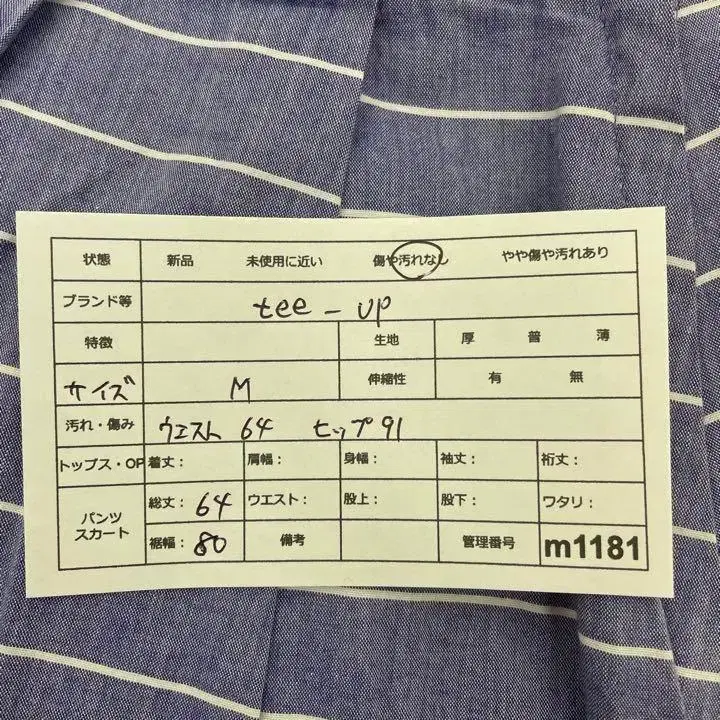 状態 新品 未使用に近い 傷や汚れなし やや傷や汚れあり
ブランド等 tee-up
特徴 生地 厚 普 薄
サイズ M 伸縮性 有 無
汚れ・傷み ウエスト 64 ヒップ 91
トップス・OP 着丈: 肩幅: 身幅: 袖丈: 裄丈:
パンツ スカート 総丈: 64 ウエスト: 股上: 股下: ワタリ:
裾幅: 80 備考 管理番号 m1181